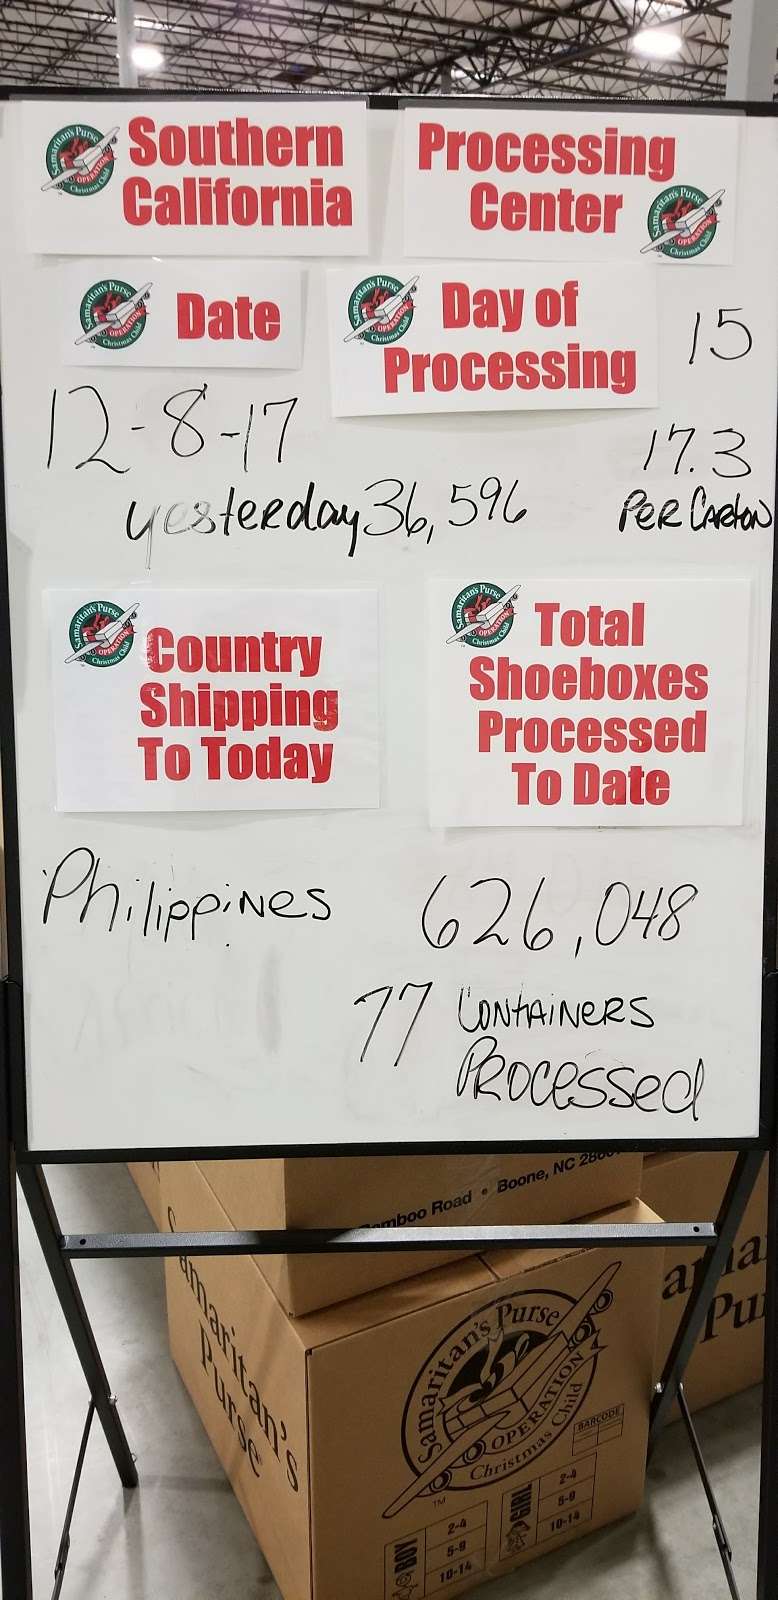 Samaritan's Purse
OPERATION
Christmas Child
TM
Southern
California
Processing
Center
Samaritan's Purse
OPERATION
Christmas Child
TM
Samaritan's Purse
OPERATION
Christmas Child
TM
Date
Samaritan's Purse
OPERATION
Christmas Child
TM
Day of
Processing
15
12-8-17
17.3
PER CARTON
yesterday 36,596
Samaritan's Purse
OPERATION
Christmas Child
TM
Country
Shipping
To Today
Samaritan's Purse
OPERATION
Christmas Child
TM
Total
Shoeboxes
Processed
To Date
Philippines
626,048
77 CONTAINERS
PROCESSED
amboo Road • Boone, NC 280
Samaritan's
Purse
Samaritan's Purse
OPERATION
Christmas Child
TM
BARCODE
BOY
2-4
5-9
10-14
GIRL
2-4
5-9
10-14